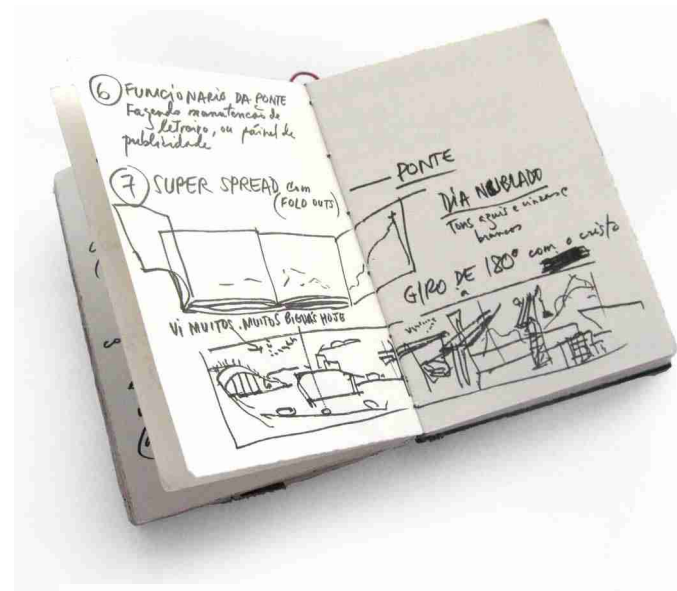 6 FUNCIONARIO DA PONTE
Fazendo manutenção de
letreiro, ou painel de
publicidade
7 SUPER SPREAD com
(FOLD OUTS)
VI MUITOS, MUITOS BIGUÁS HOJE
PONTE
DIA NUBLADO
Tons azuis e cinzas e
brancos
GIRO DE 180º com o cristo